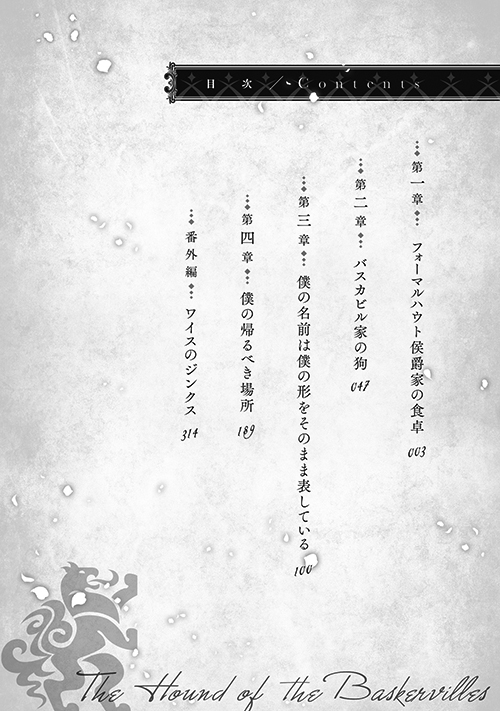 目次/Contents
第一章 フォーマルハウト侯爵家の食卓 003
第二章 バスカビル家の狗 047
第三章 僕の名前は僕の形をそのまま表している 100
第四章 僕の帰るべき場所 189
番外編 ワイスのジンクス 314
The Hound of the Baskervilles